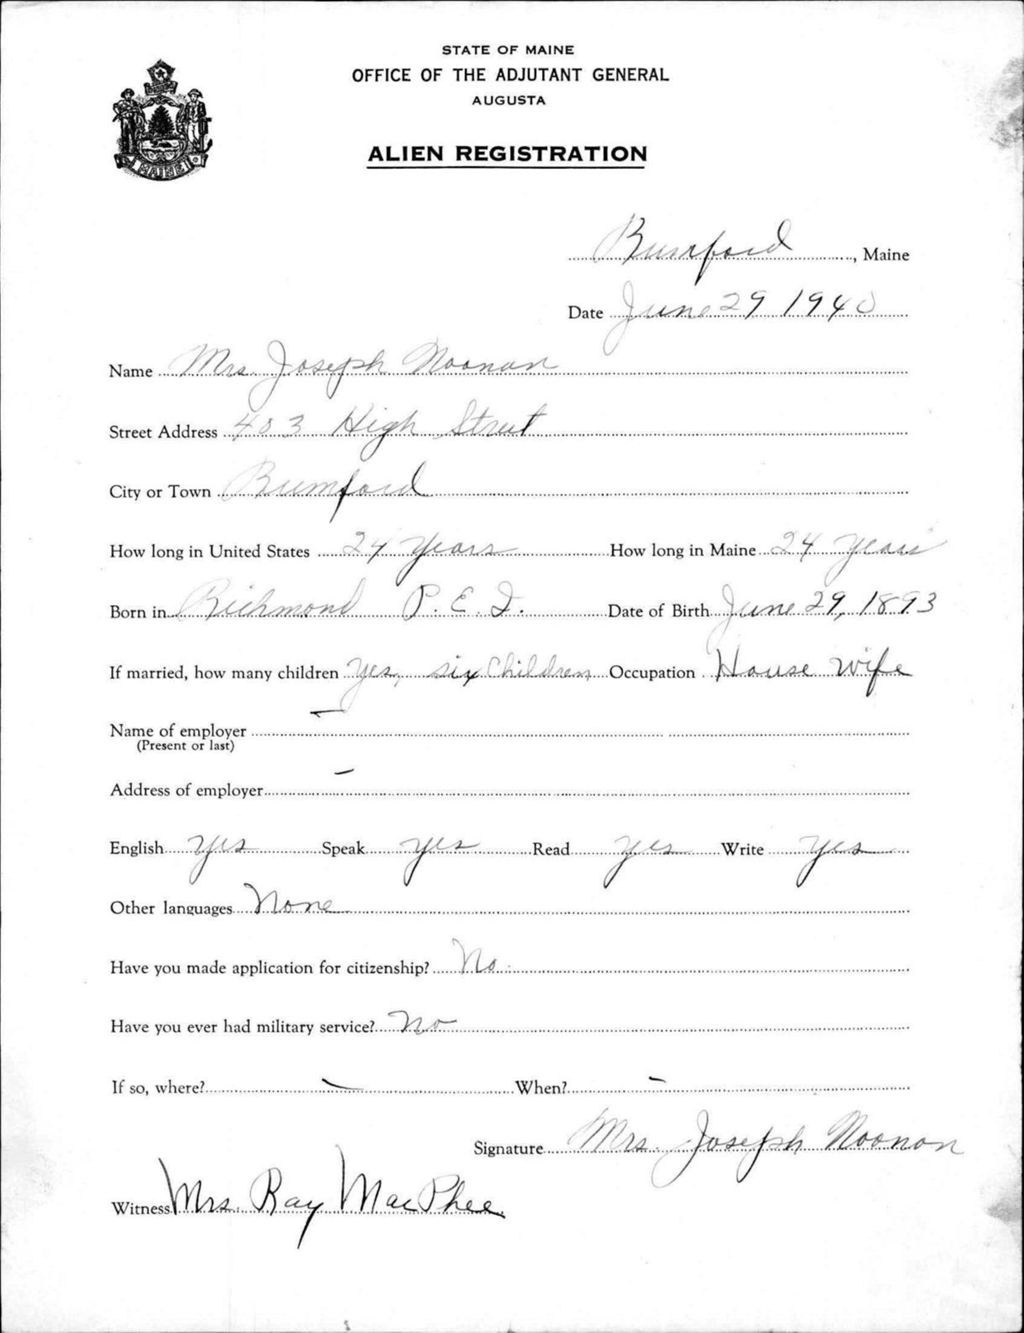 STATE OF MAINE
OFFICE OF THE ADJUTANT GENERAL
AUGUSTA
ALIEN REGISTRATION
MAINE
Rumford, Maine
Date June 29 1940
Name Mrs. Joseph Noonan
Street Address 403 High Street
City or Town Rumford
How long in United States 24 Years How long in Maine 24 Years
Born in Richmond P. E. I. Date of Birth June 29, 1893
If married, how many children Yes, six Children Occupation House wife
Name of employer -
(Present or last)
Address of employer -
English yes Speak yes Read yes Write yes
Other languages None
Have you made application for citizenship? No.
Have you ever had military service? No
If so, where? - When? -
Signature Mrs. Joseph Noonan
Witness Mrs. Ray MacPhee